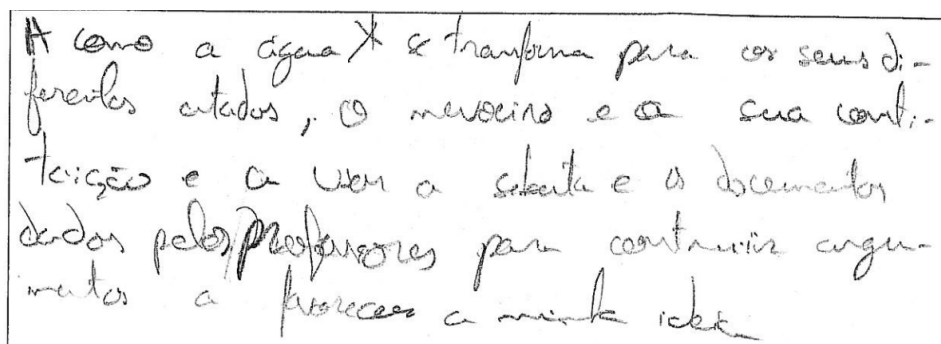 A como a água X se tranforma para os seus di-
ferentes estados, O nevoeiro e a sua conti-
tuição e a usar a sebenta e os documentos
dados pelos professores para construir argu-
mentos a favorecer a minha ideia